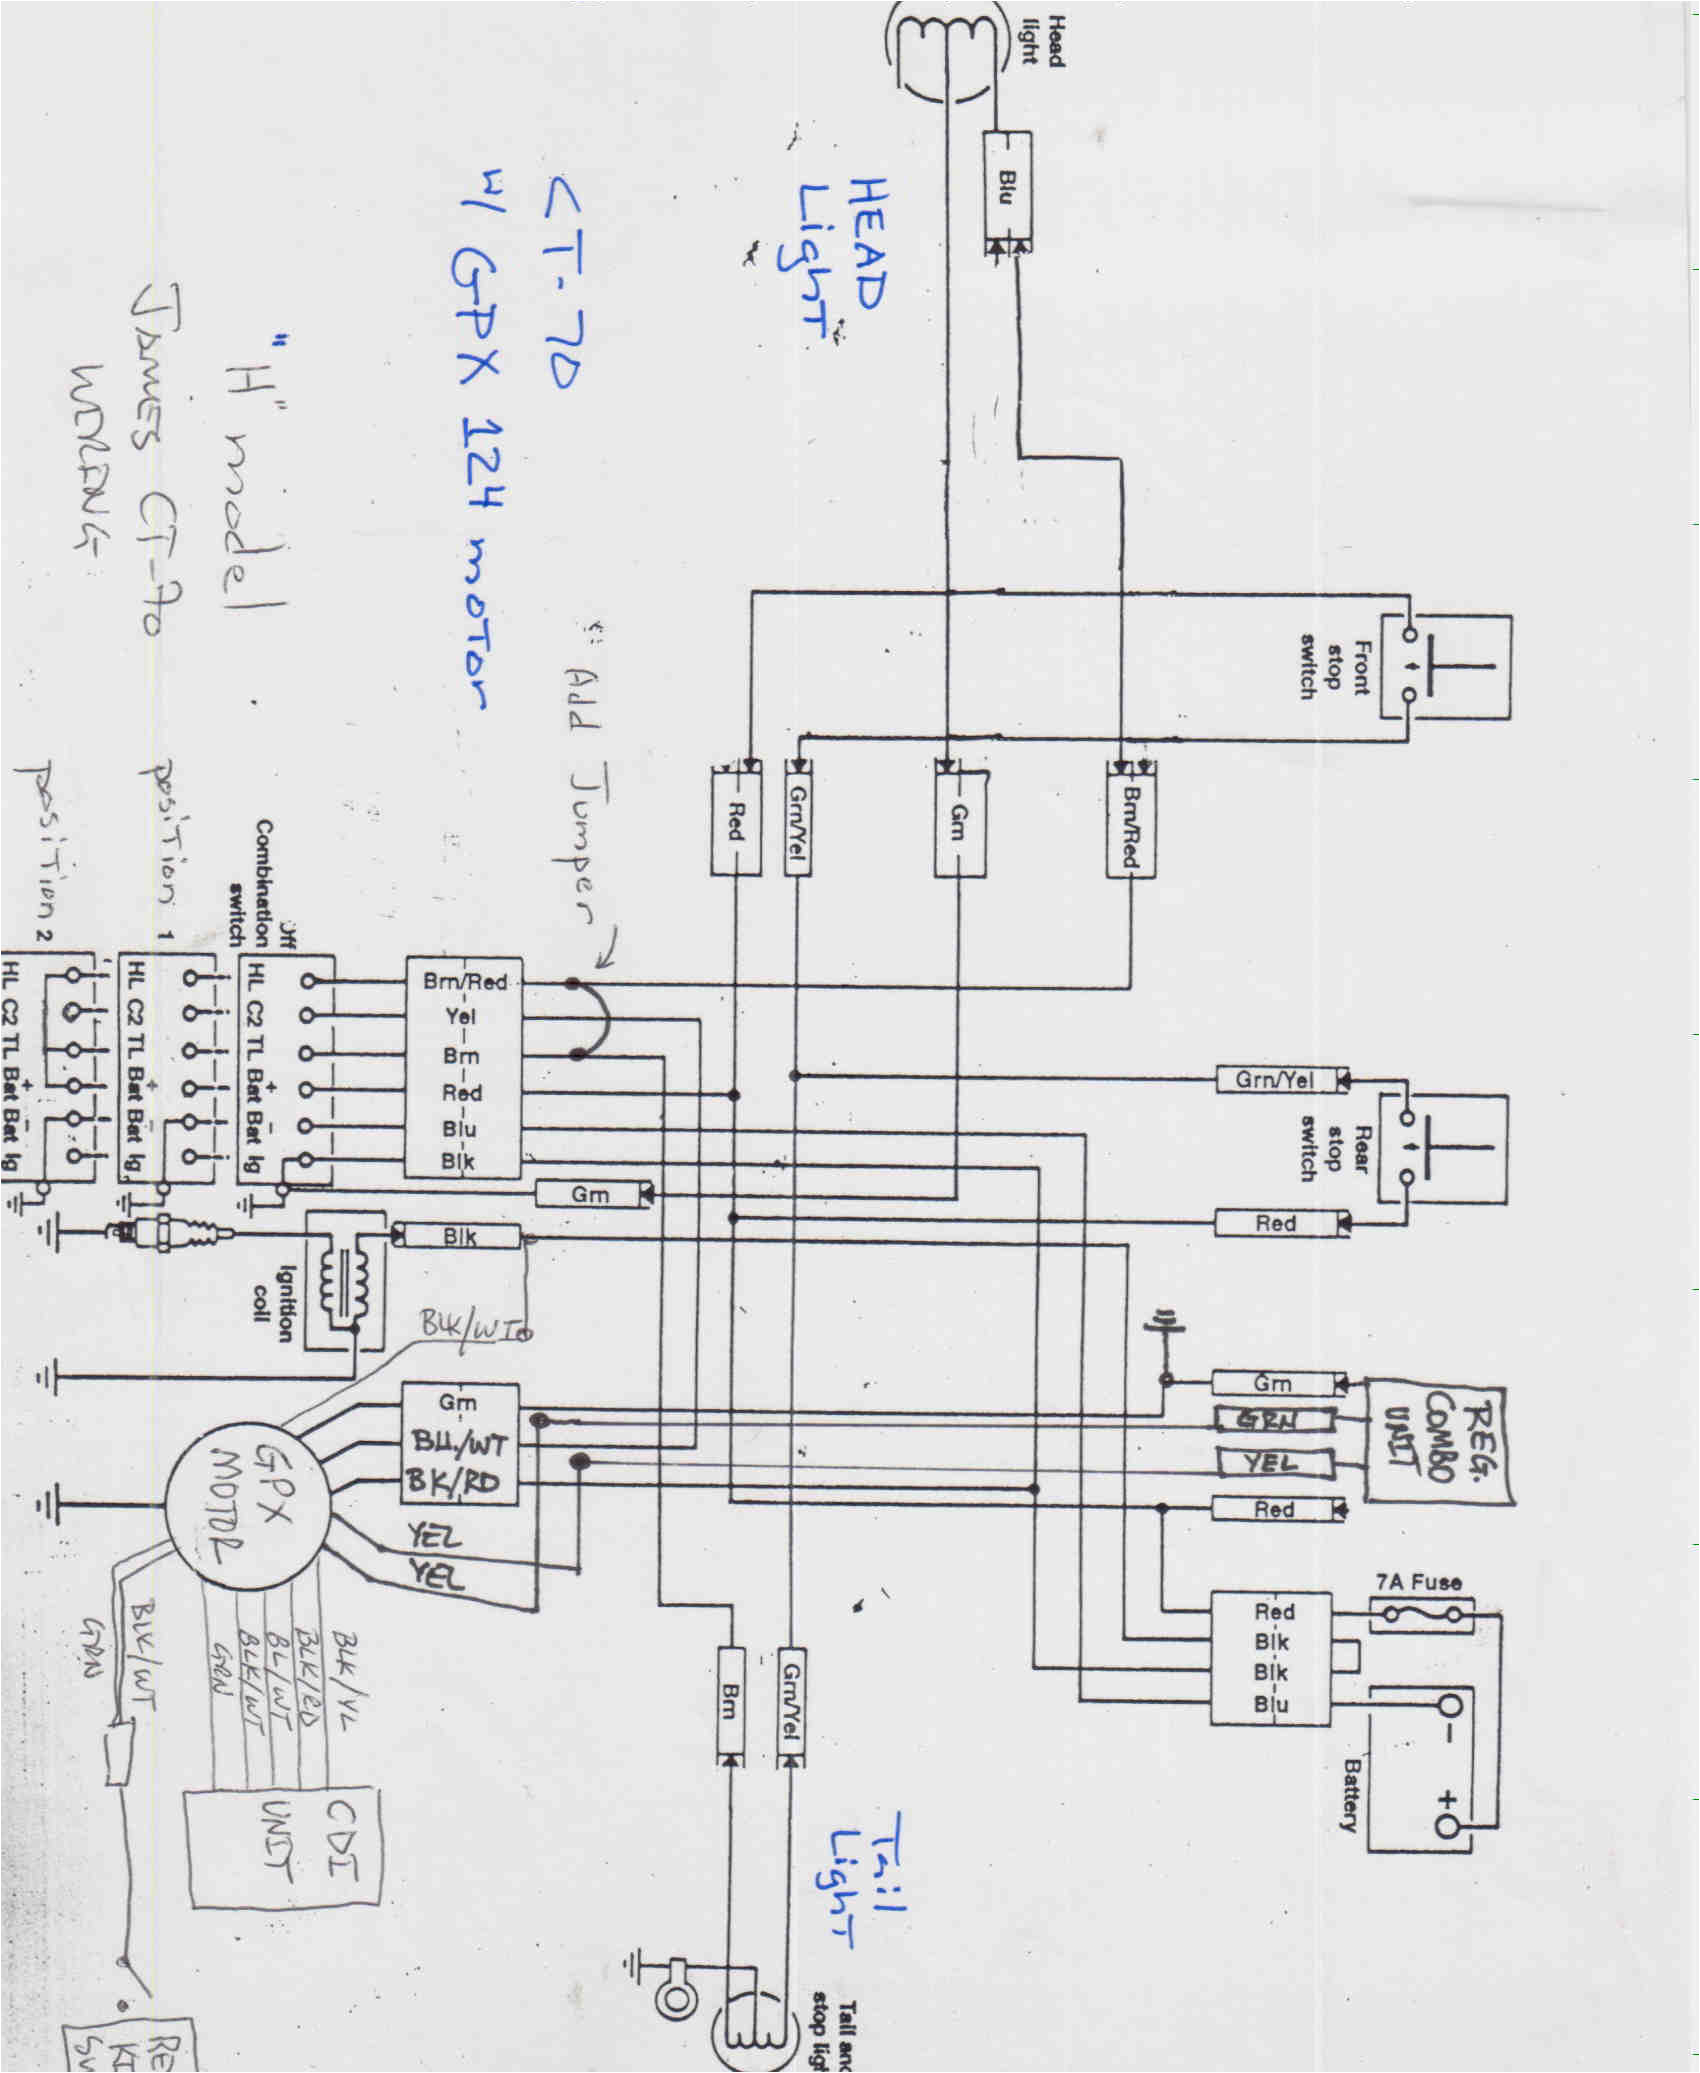 Head
light
Blu
HEAD
Light
CT-70
w/ GPX 124 motor
"H" model
James CT-70
WIRING
Front
stop
switch
Add Jumper
Red
Grn/Yel
Grn
Brn/Red
position 1
position 2
Combination
switch
Off
HL C2 TL Bat Bat Ig
+ -
1
HL C2 TL Bat Bat Ig
+ -
2
HL C2 TL Bat Bat Ig
+ -
Brn/Red
Yel
Brn
Red
Blu
Blk
Grn
Grn/Yel
Rear
stop
switch
Red
Blk
Ignition
coil
BLK/WT
Grn
BU./WT
BK/RD
YEL
YEL
GPX
MOTOR
Grn
GRN
YEL
Red
REG.
COMBO
UNIT
7A Fuse
Red
Blk
Blk
Blu
-
+
Battery
Brn
Grn/Yel
BLK/WT
GRN
BLK/YL
BLK/RD
BL/WT
BLK/WT
GRN
CDI
UNIT
Tail
Light
Tail and
stop ligh
RE
KI
SW